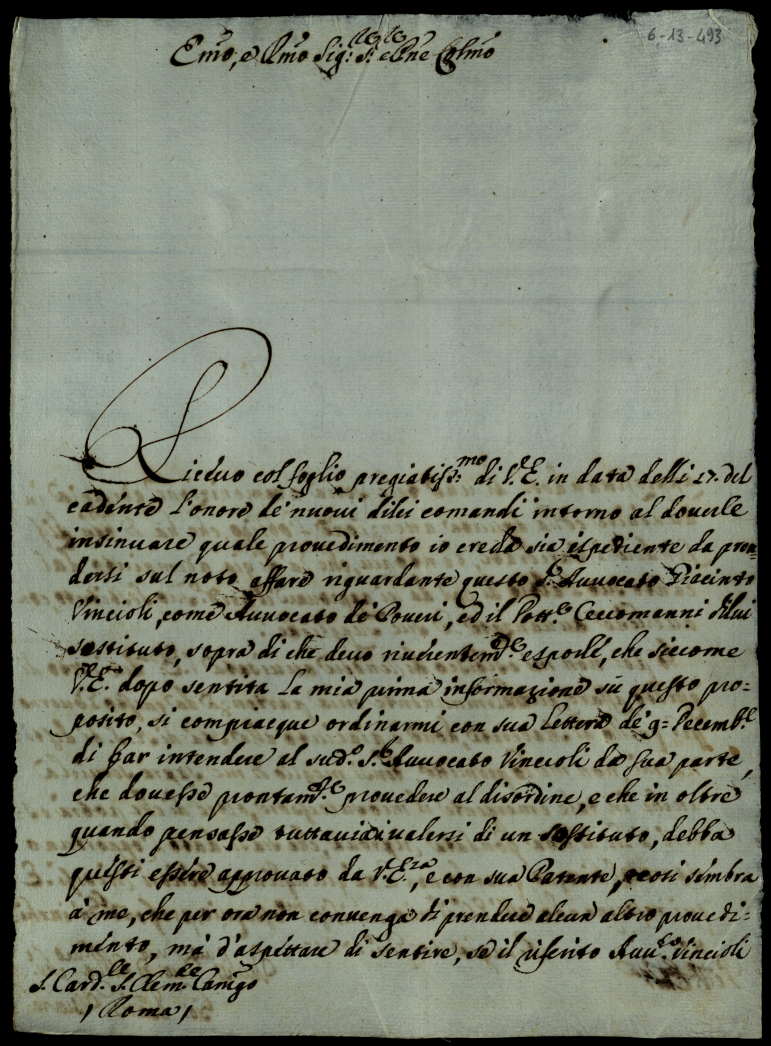 6-13-493
Emo, e Rmo Sig: S: e Pne Colmo
Riceuo col foglio pregiatiss:mo di V.E. in data delli 17. del
cadente l'onore de' nuoui dilei comandi intorno al douerle
insinuare quale prouedimento io creda sia ispediente da pren=
dersi sul noto affare riguardante questo S. Auuocato Giacinto
Vincioli, come Auuocato de' Poueri, ed il Dott.e Ceccomanni dilui
sostituto, sopra di che deuo riuerentem.e esporle, che siccome
V.E. dopo sentita la mia prima informazione sù questo pro=
posito, si compiacque ordinarmi con sua lettera de' 9= Decemb.e
di far intendere al sud.o S. Auuocato Vincioli da sua parte,
che douesse prontam.e prouedere al disordine, e che in oltre
quando pensasse tuttauia di ualersi di un sostituto, debba
questi essere approuato da V.E.za, e con sua Patente, così sembra
à me, che per ora non conuenga di prendere alcun altro prouedi=
mento, mà d'aspettare di sentire, se il riferito Auu.to Vincioli
S. Card.le S. Clem.te Camgo
/ Roma /